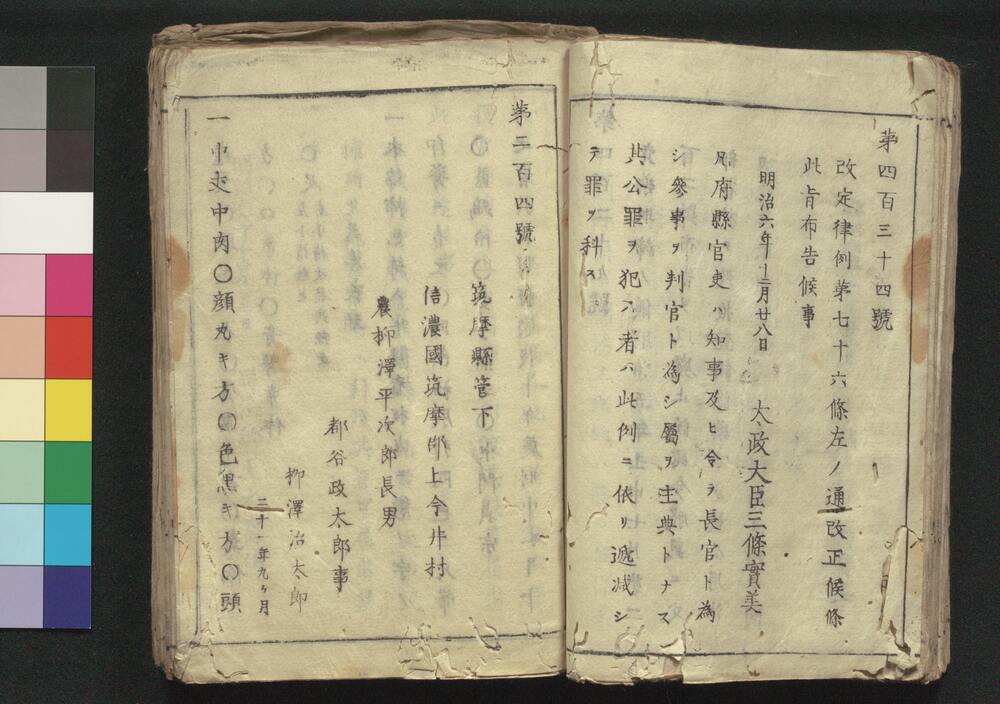 第四百三十四號
改定律例第七十六條左ノ通改正候條
此旨布告候事
明治六年十二月廿八日 太政大臣三條實美
凡府縣官吏ハ知事及ヒ令ヲ長官ト為
シ參事ヲ判官ト為シ屬ヲ主典トナス
其公罪ヲ犯ス者ハ此例ニ依リ遞减シ
テ罪ヲ科ス
第二百四號
筑摩縣管下
信濃國筑摩郡上今井村
農柳澤平次郎長男
都谷政太郎事
柳澤治太郎
二十一年九ヶ月
一中丈中肉〇顔丸キ方〇色黒キ方〇頭